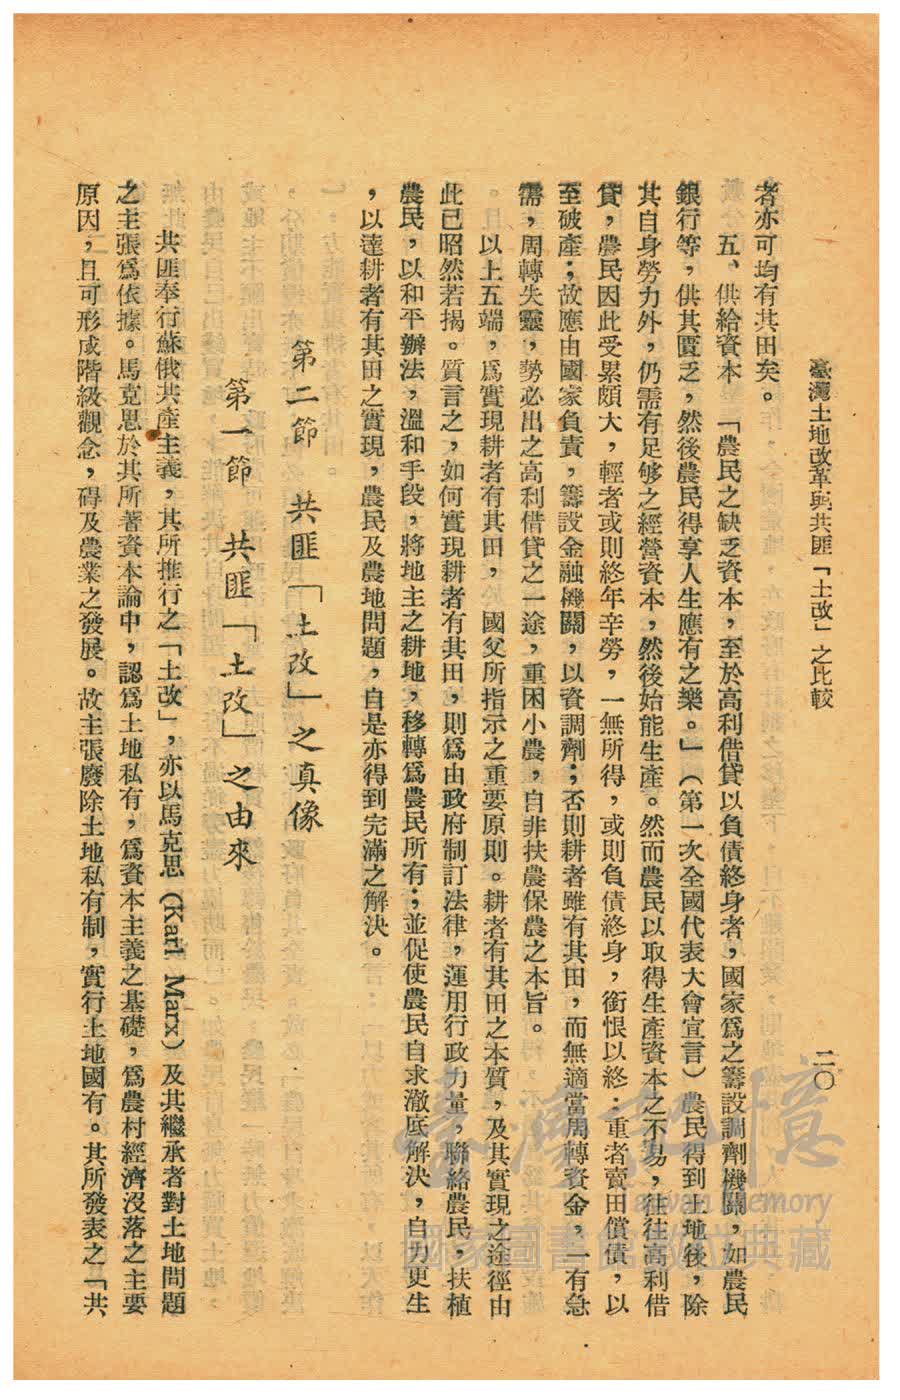 臺灣土地改革與共匪「土改」之比較
二〇
者亦可均有其田矣。
五、供給資本 「農民之缺乏資本，至於高利借貸以負債終身者，國家爲之籌設調劑機關，如農民
銀行等，供其匱乏，然後農民得享人生應有之樂。」（第一次全國代表大會宣言）農民得到土地後，除
其自身勞力外，仍需有足够之經營資本，然後始能生產。然而農民以取得生產資本之不易，往往高利借
貸，農民因此受累頗大，輕者或則終年辛勞，一無所得，或則負債終身，銜恨以終：重者賣田償債，以
至破產；故應由國家負責，籌設金融機關，以資調劑；否則耕者雖有其田，而無適當周轉資金，一有急
需，周轉失靈，勢必出之高利借貸之一途，重困小農，自非扶農保農之本旨。
以上五端，爲實現耕者有其田，於 國父所指示之重要原則。耕者有其田之本質，及其實現之途徑由
此已昭然若揭。質言之，如何實現耕者有其田，則爲由政府制訂法律，運用行政力量，聯絡農民，扶植
農民，以和平辦法，溫和手段，將地主之耕地，移轉爲農民所有；並促使農民自求澈底解決，自力更生
，以達耕者有其田之實現，農民及農地問題，自是亦得到完滿之解決。
第二節 共匪「土改」之真像
第一節 共匪「土改」之由來
共匪奉行蘇俄共產主義，其所推行之「土改」，亦以馬克思（Karl Marx）及其繼承者對土地問題
之主張爲依據。馬克思於其所著資本論中，認爲土地私有，爲資本主義之基礎，爲農村經濟沒落之主要
原因，且可形成階級觀念，碍及農業之發展。故主張廢除土地私有制，實行土地國有。其所發表之「共
臺灣記憶
Taiwan Memory
國家圖書館數位典藏